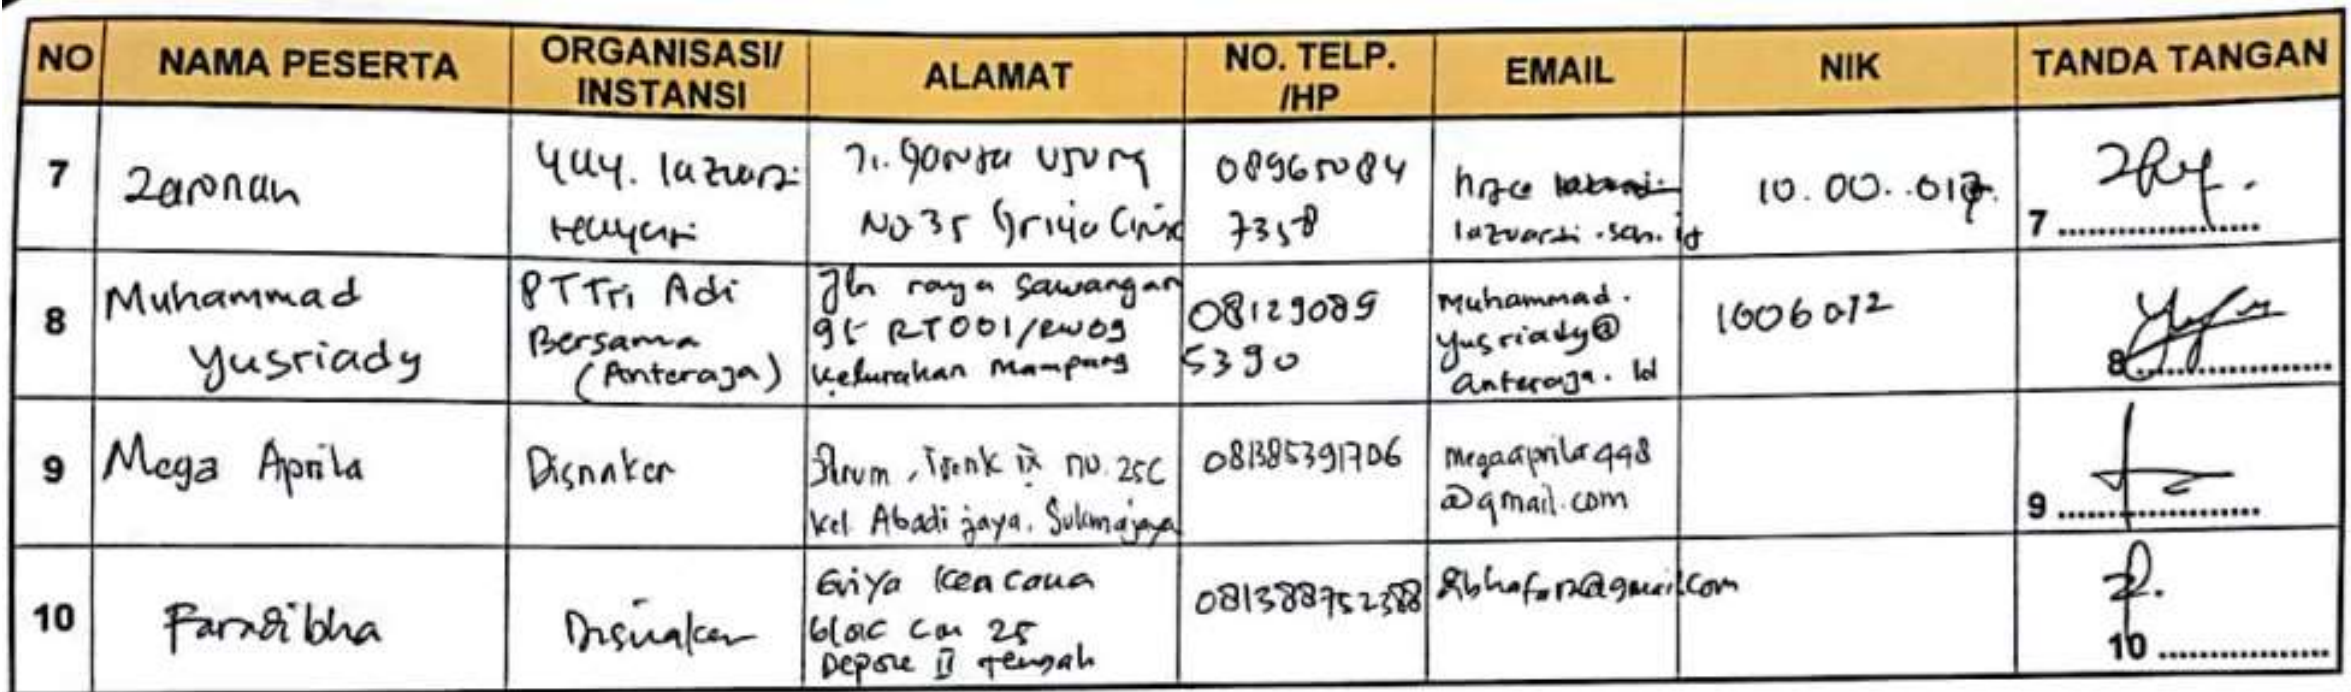 NO NAMA PESERTA ORGANISASI/ INSTANSI ALAMAT NO. TELP. /HP EMAIL NIK TANDA TANGAN
7
Zaronah
Yay. lazuardi
Hayati
No 35 Griya Cinere
08965084
7358
lazuardi.sch.id
7
8
Muhammad
Yusriady
PT Tri Adi
Bersama
(Anteraja)
Jln raya Sawangan
95 RT001/RW09
Kelurahan Mampang
08129089
5390
Muhammad.
yusriady@
anteraja.id
1006012
8
9
Mega Aprila
Disnaker
no. 25C
Kel Abadi jaya, Sukmajaya
081385391706
megaaprila998
@gmail.com
9
10
Faradibha
Disnaker
Griya Kencana
blok 25
Depok II tengah
081388752388
10